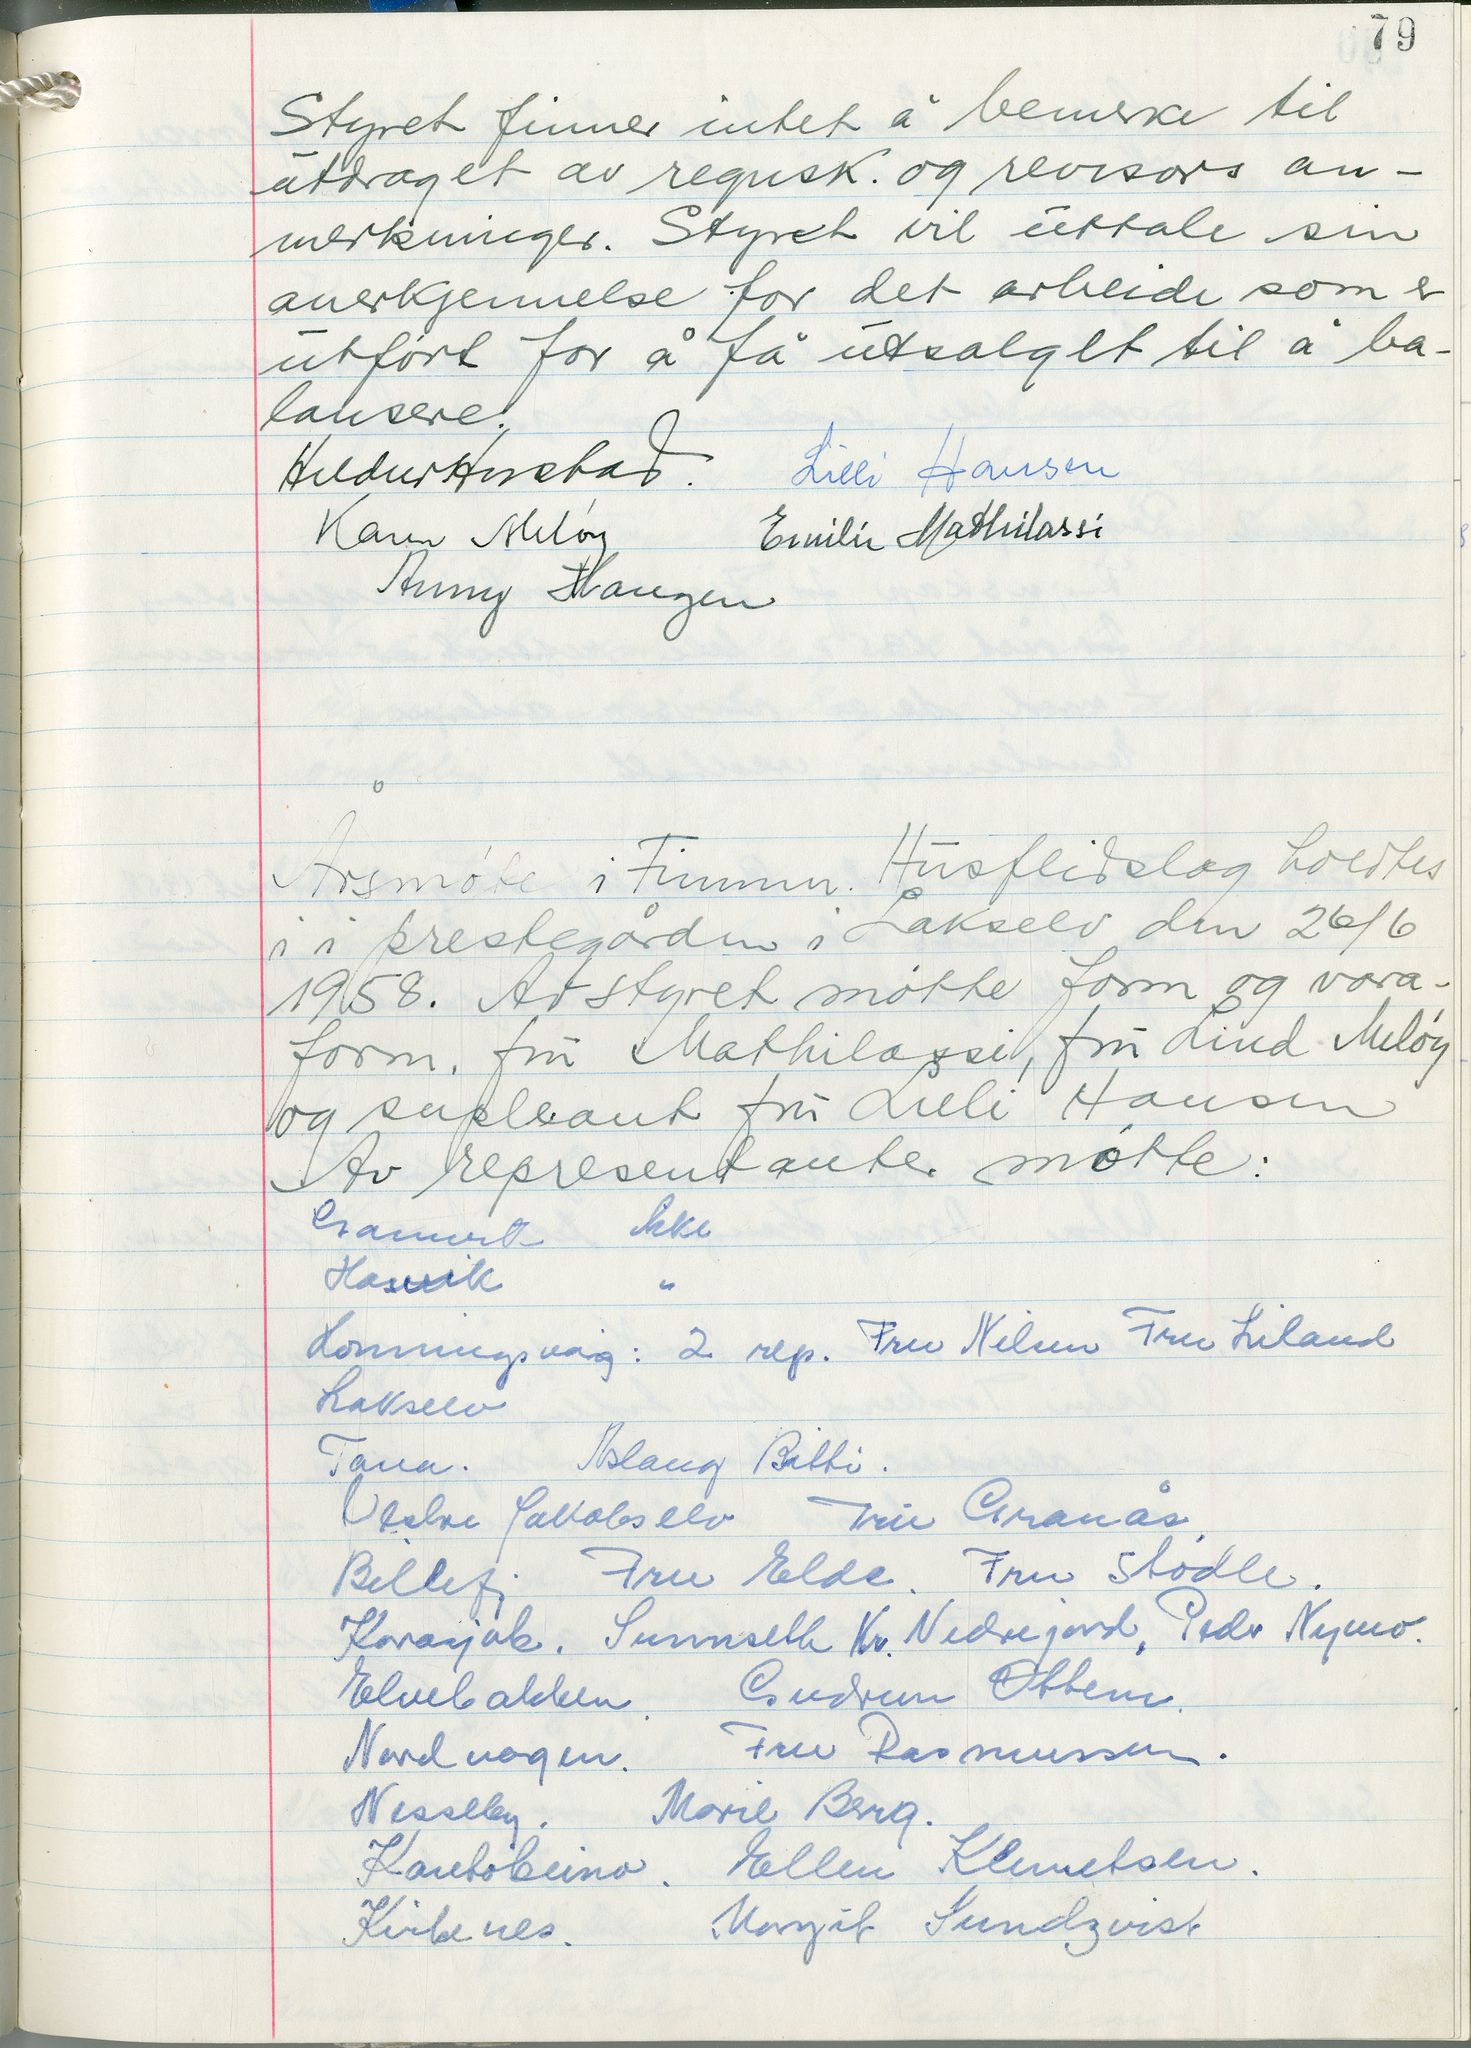 79
Styret finner intet å bemerke til
utdraget av regnsk. og revisors an-
merkninger. Styret vil uttale sin
anerkjennelse for det arbeide som er
utført for å få utsalget til å ba-
lansere.
Hildur Harstad. Lilli Hansen
Karen Meløy Emilie Mathilassi
Anny Haugen
Årsmøte i Finnm. Husflidslag holdtes
i i prestegården i Lakselv den 26/6
1958. Av styret møtte form og vara-
form. fru Mathilassi, fru Lind Meløy
og supleant fru Lilli Hansen
Av representanter møtte:
Gamvik Ikke
Hasvik "
Honningsvåg: 2 rep. Fru Nilsen Fru Liland
Lakselv
Tana. Aslaug Bitti.
Vestre Jakobselv Fru Granås.
Billefj Fru Elde. Fru Stødle.
Karasjok. Sunnseth Kr. Nedrejord, Peder Nymo.
Elvebakken. Gudrun Ottem.
Nordvågen. Fru Rasmussen.
Nesseby. Marie Berg.
Kautokeino. Ellen Klemetsen.
Kirkenes. Margit Sundqvist